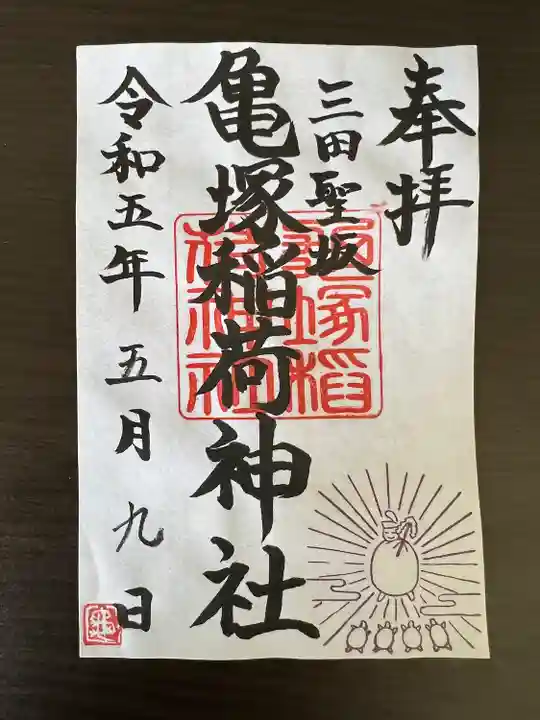 奉拝
三田聖坂
亀塚稲荷神社
令和五年五月九日
亀塚稲
荷神社